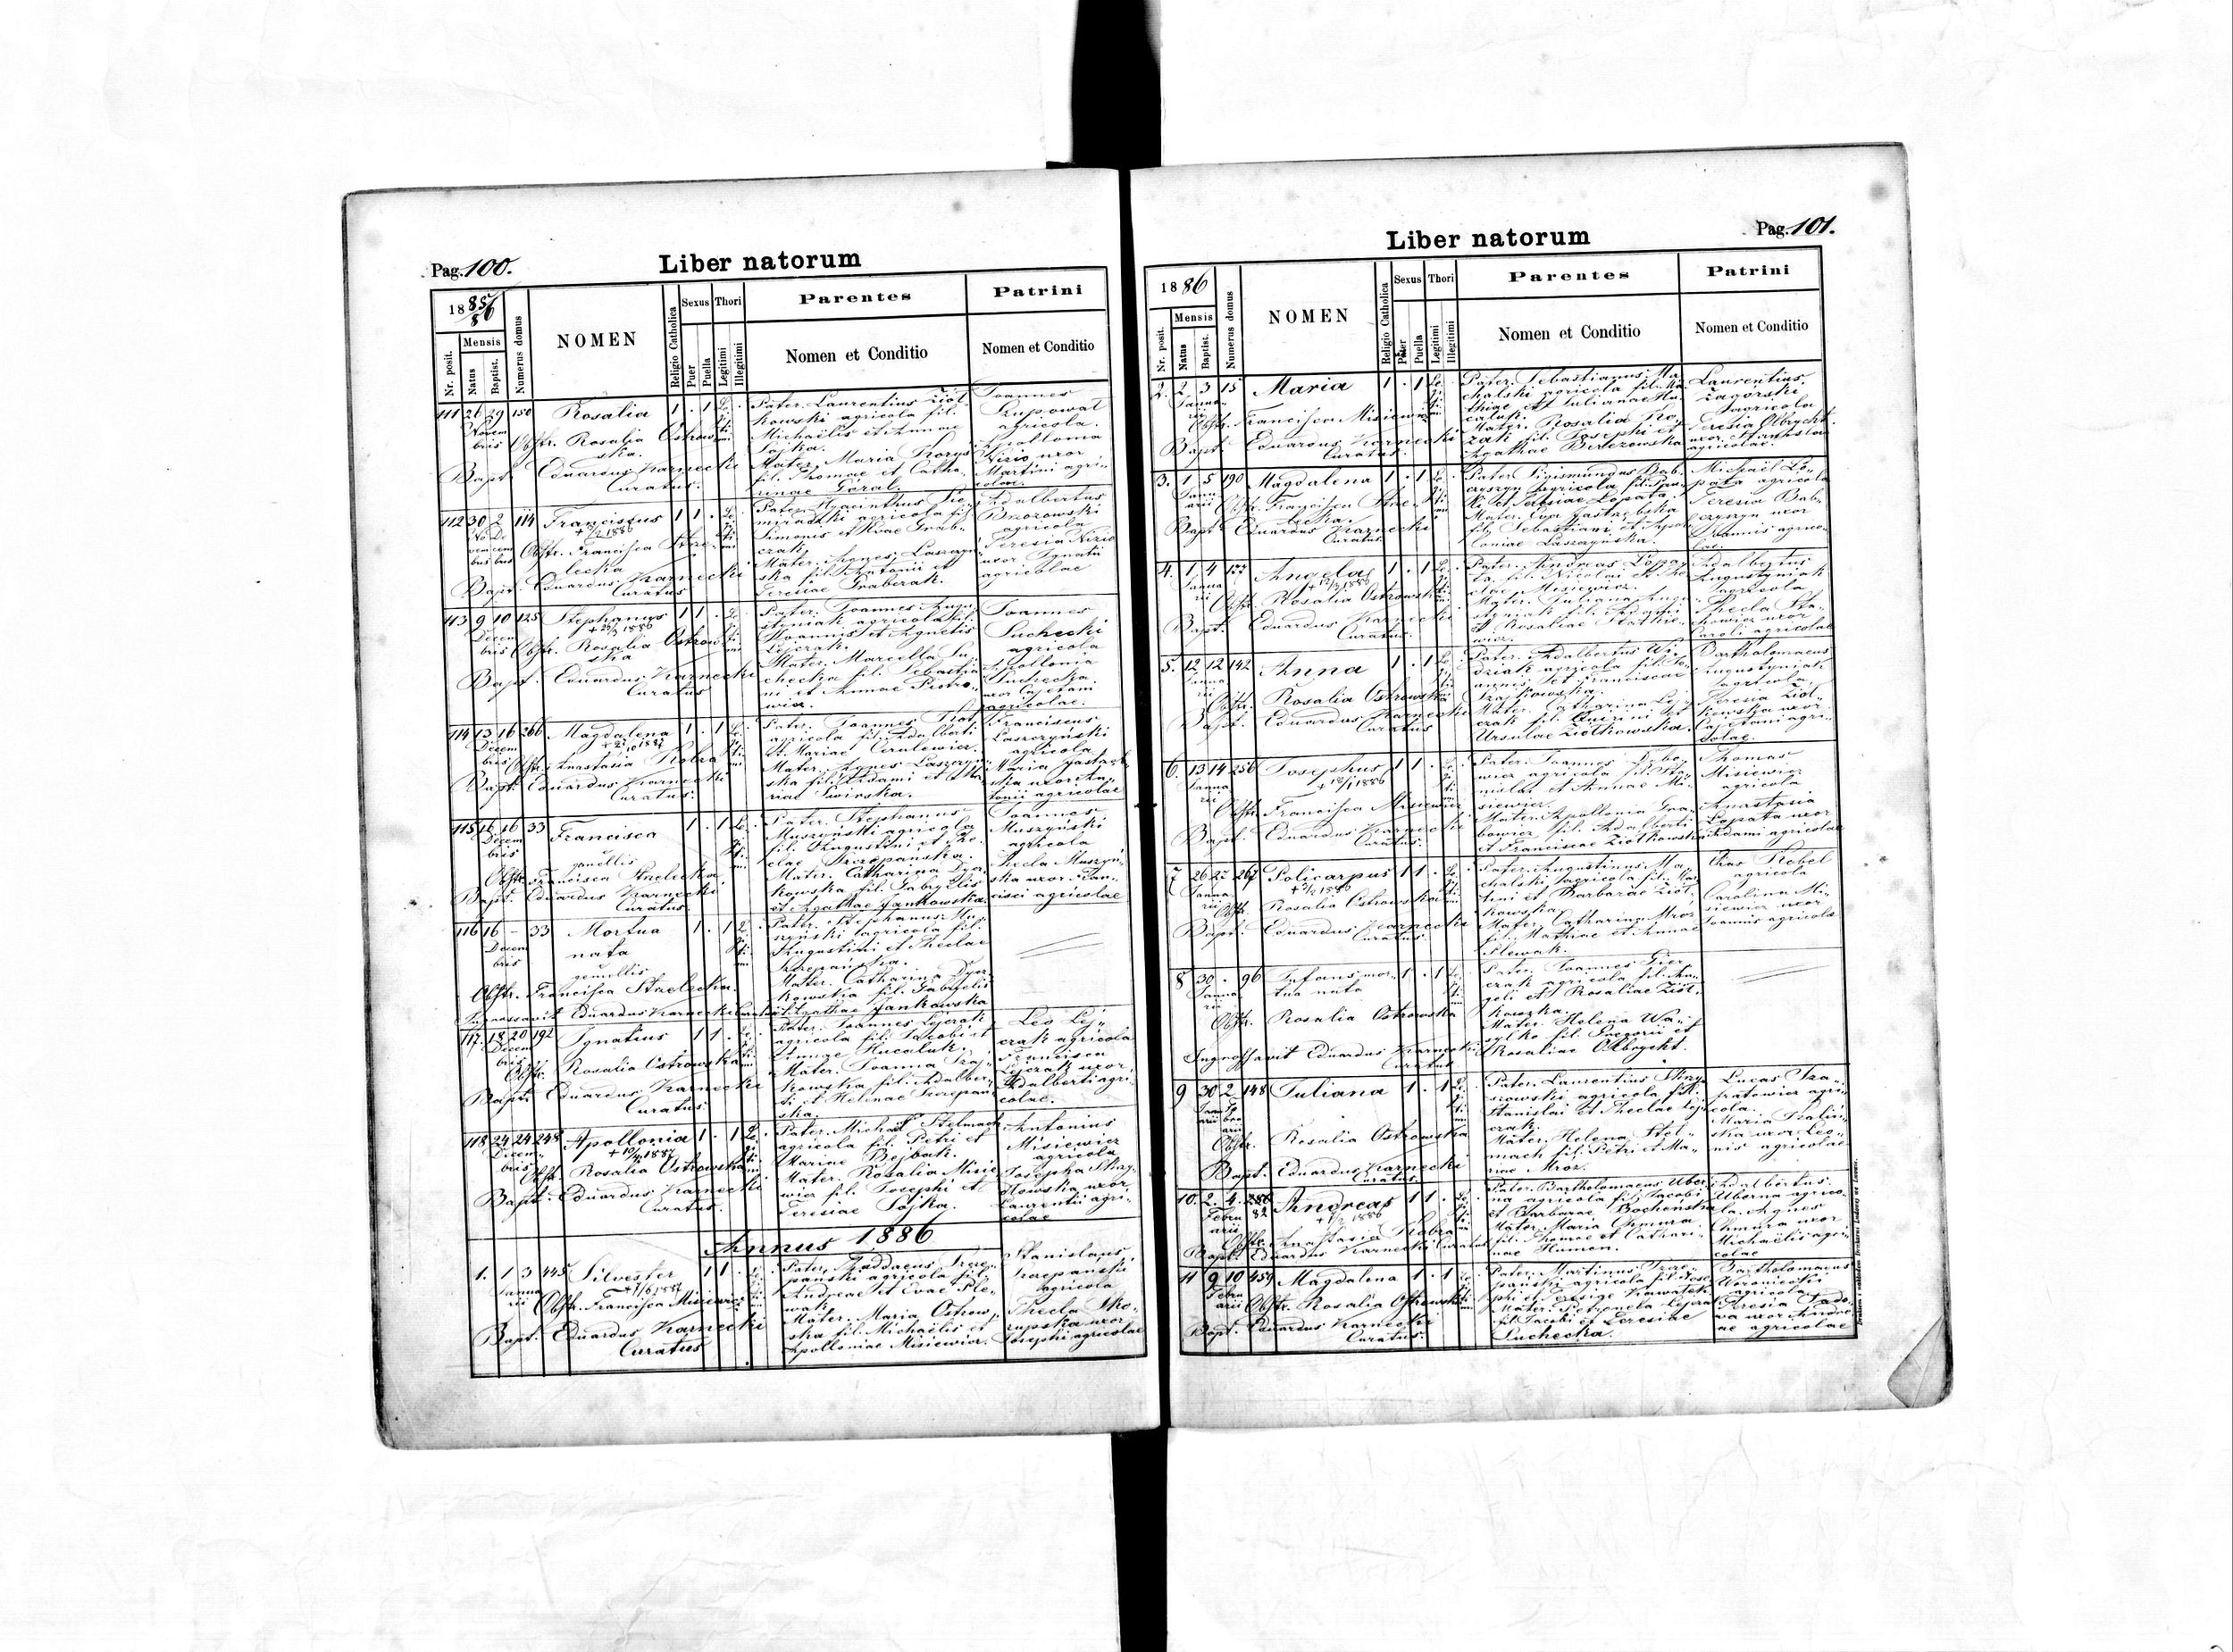 Pag. 100.
Liber natorum
18 85/86
Nr. posit.
Mensis
Natus
Baptist.
Numerus domus
NOMEN
Religio Catholica
Sexus
Puer
Puella
Thori
Legitimi
Illegitimi
Parentes
Nomen et Conditio
Patrini
Nomen et Conditio
111 26 29 150 Rosalia 1 . 1
Novembris
Obstr. Rosalia Ostrowska.
Bapt. Eduardus Karnecki
Curatus.
Pater. Laurentius Ziół-
kowski agricola fil.
Michaëlis et Annae
Sojka.
Mater. Maria
fil. Thomae et Catha-
rinae Góral.
Joannes
agricola.
Apollonia
Nizio uxor
Martini agri-
colae.
112 30 2 114 Franciscus 1 1 .
Obstr. Francisca Strze-
lecka
Bapt. Eduardus Karnecki
Curatus
Pater. Hyacinthus
agricola fil.
Simonis et Evae Grab-
czak
Mater. Agnes Laszczyń-
ska fil. Antonii et
Teresiae Graberak.
Adalbertus
Brzozowski
agricola
Teresia Nizio
uxor Ignatii
agricolae
113 9 10 125 Stephanus 1 1 .
Decembris
Obstr. Rosalia Ostrowska
Bapt. Eduardus Karnecki
Curatus
Pater. Joannes Augu-
styniak agricola fil.
Joannis et Agnetis
Lejczak.
Mater. Marcella Su-
checka fil. Sebastia
ni et Annae Piotro-
wicz.
Joannes
Suchecki
agricola
Apollonia
Suchecka
uxor Cajetani
agricolae.
114 13 16 266 Magdalena 1 . 1
Decembris
Obstr. Anastasia Kobza
Bapt. Eduardus Karnecki
Curatus.
Pater. Joannes
agricola fil. Adalberti
et Mariae
Mater. Agnes Laszczyń-
ska fil. Adami et Ma-
riae Swirska.
Franciscus
Laszczyński
agricola
Maria
ska uxor An-
tonii agricolae
115 16 16 33 Francisca 1 . 1
Decembris
gemellis
Obstr. Francisca Strzelecka
Bapt. Eduardus Karnecki
Curatus
Pater. Stephanus
Muszyński agricola
fil. Augustini et The-
clae Szczepańska.
Mater. Catharina
kowska fil. Gabryelis
et Agathae Jankowska.
Joannes
Muszyński
agricola
Thecla Muszyń-
ska uxor Fran-
cisci agricolae
116 16 – 33 Mortua 1 . 1
Decembris
nata
gemellis
Obstr. Francisca Strzelecka.
Eduardus Karnecki
Pater. Stephanus Mu-
szyński agricola fil.
Augustini et Theclae
Szczepańska.
Mater. Catharina
kowska fil. Gabryelis
et Agathae Jankowska
117. 18 20 192 Ignatius 1 1 .
Decembris
Obstr. Rosalia Ostrowska
Bapt. Eduardus Karnecki
Curatus.
Pater. Joannes Lejczak
agricola fil. Jacobi et
Annae Hucaluk.
Mater. Joanna
kowska fil. Adalber-
ti et Helenae Szczepań
ska.
Leo Lej-
czak agricola
Francisca
Lejczak uxor
Adalberti agri-
colae.
118 24 24 248 Apollonia 1 . 1
Decembris
Obstr. Rosalia Ostrowska
Bapt. Eduardus Karnecki
Curatus.
Pater. Michaël Stelmach
agricola fil. Petri et
Mariae Bejbak.
Mater. Rosalia Misie
wicz fil. Josephi et
Teresiae Sojka.
Antonius
Misiewicz
agricola
Josepha
uxor
Laurentii agri-
colae
Annus 1886
1. 1 3 445 Silvester 1 1 .
Januarii
Obstr. Francisca Misiewicz
Bapt. Eduardus Karnecki
Curatus
Pater. Thaddaeus Szcze-
pański agricola fil.
Andreae et Evae Ple-
wak
Mater. Maria Ostrow-
ska fil. Michaëlis et
Apolloniae Misiewicz.
Stanislaus
Szczepański
agricola
Thecla Sko-
rupska uxor
Josephi agricolae
Liber natorum
Pag. 101.
18 86
Nr. posit.
Mensis
Natus
Baptist.
Numerus domus
NOMEN
Religio Catholica
Sexus
Puer
Puella
Thori
Legitimi
Illegitimi
Parentes
Nomen et Conditio
Patrini
Nomen et Conditio
2. 2 3 15 Maria 1 . 1
Januarii
Obstr. Francisca Misiewicz
Bapt. Eduardus Karnecki
Curatus.
Pater. Sebastianus Ma-
chalski agricola fil. Ma
thiae et Julianae Hu-
caluk.
Mater. Rosalia
fil. Josephi et
Agathae Berezowska
Laurentius
Zagórski
agricola
Teresia Olbrycht
uxor Stanislai
agricolae.
3. 1 5 190 Magdalena 1 . 1
Januarii
Obstr. Francisca Strze-
lecka.
Bapt. Eduardus Karnecki
Curatus.
Pater. Sigismundus Bab-
czyszyn agricola fil.
et Teresiae Łopata.
Mater. Eva Jastrzębska
fil. Sebastiani et Apol-
loniae Laszczyńska.
Michaël Ło-
pata agricola
Teresia Bab-
czyszyn uxor
Joannis agrico-
lae.
4. 1 4 177 Angela 1 . 1
Januarii
Obstr. Rosalia Ostrowska
Bapt. Eduardus Karnecki
Curatus.
Pater. Andreas Łopa-
ta, fil. Nicolai et The
clae Misiewicz.
Mater. Juliana Augu-
styniak fil. Adami
et Rosaliae
Adalbertus
Augustyniak
agricola
Thecla Sta-
chowicz uxor
Caroli agricolae
5. 12 12 142 Anna 1 . 1
Januarii
Obstr. Rosalia Ostrowska
Bapt. Eduardus Karnecki
Curatus
Pater. Adalbertus Wi-
dziak agricola fil. Jo-
annis et Franciscae
Mater. Catharina Lej-
czak fil. Quirini et
Ursulae Ziółkowska.
Bartholomaeus
Augustyniak
agricola
Teresia Ziół-
kowska uxor
Cajetani agri-
colae.
6. 13 14 256 Josephus 1 1 .
Januarii
Obstr. Francisca Misiewicz
Bapt. Eduardus Karnecki
Curatus.
Pater. Joannes
agricola fil. Sta-
nislai et Annae Mi-
siewicz.
Mater. Apollonia Gra-
bowicz fil. Adalberti
et Franciscae Ziółkowska
Thomas
Misiewicz
agricola
Anastasia
Łopata uxor
Adami agricolae
7 26 27 267 Policarpus 1 1 .
Januarii
Obstr. Rosalia Ostrowska
Bapt. Eduardus Karnecki
Curatus.
Pater. Augustinus Ma-
chalski agricola fil. Mar
tini et Barbarae Ziół-
kowska.
Mater. Catharina Mróz
fil. Mathiae et Annae
Plewak.
Kobel
agricola
Carolina Mi-
siewicz uxor
Joannis agricolae
8 30 . 96 Infans mor- 1 . 1
tua nata
Januarii
Obstr. Rosalia Ostrowska
Ingrossavit Eduardus Karnecki
Curatus
Pater. Joannes
agricola fil. An-
geli et Rosaliae Ziół-
kowska.
Mater. Helena Wa-
sylko fil. Gregorii et
Rosaliae Olbrycht.
9 30 2 148 Juliana 1 . 1
Obstr. Rosalia Ostrowska
Bapt. Eduardus Karnecki
Curatus.
Pater. Laurentius
agricola fil.
Stanislai et Theclae Lej-
czak.
Mater. Helena Stel-
mach fil. Petri et Ma-
riae Mróz.
Lucas
agri-
cola.
Maria
ska uxor Leo-
nis agricolae
10. 2 4 82 Andreas 1 1 .
Februarii
Obstr. Anastasia Kobza
Bapt. Eduardus Karnecki Curatus
Pater. Bartholomaeus Uber
na agricola fil. Jacobi
et Barbarae Bochońska
Mater. Maria Chmura
fil. Thomae et Cathari-
nae Humen.
Adalbertus
Uberna agrico-
la. Agnes
Chmura uxor
Michaëlis agri-
colae
11 9 10 459 Magdalena 1 . 1
Februarii
Obstr. Rosalia Ostrowska
Bapt. Eduardus Karnecki
Curatus.
Pater. Martinus Szcze-
pański agricola fil. Jose
phi et Teresiae
Mater. Petronela Lejczak
fil. Jacobi et Teresiae
Suchecka.
Bartholomaeus
agricola
Teresia
uxor
agricolae